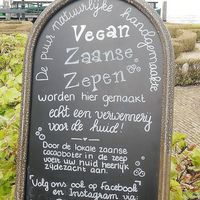 De puur natuurlijke handgemaakte
Vegan
Zaanse
Zepen
worden hier gemaakt
echt een verwennerij
voor de huid!
Door de lokale zaanse
cacaoboter in de zeep
voelt uw huid heerlijk
zijdezacht aan.
Volg ons ook op Facebook
en Instagram via: